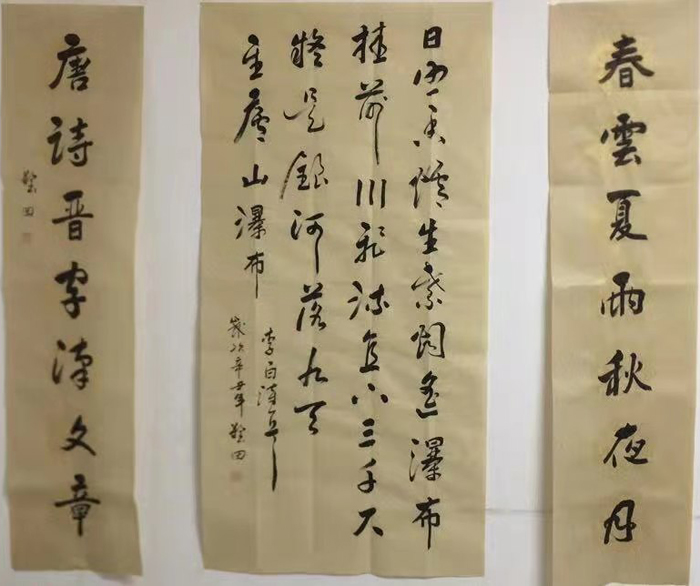 春雲夏雨秋夜月
日照香爐生紫烟遙瀑布
挂前川飛流直下三千尺
疑是銀河落九天
望廬山瀑布
李白詩
歲次辛丑年
唐詩晉字漢文章